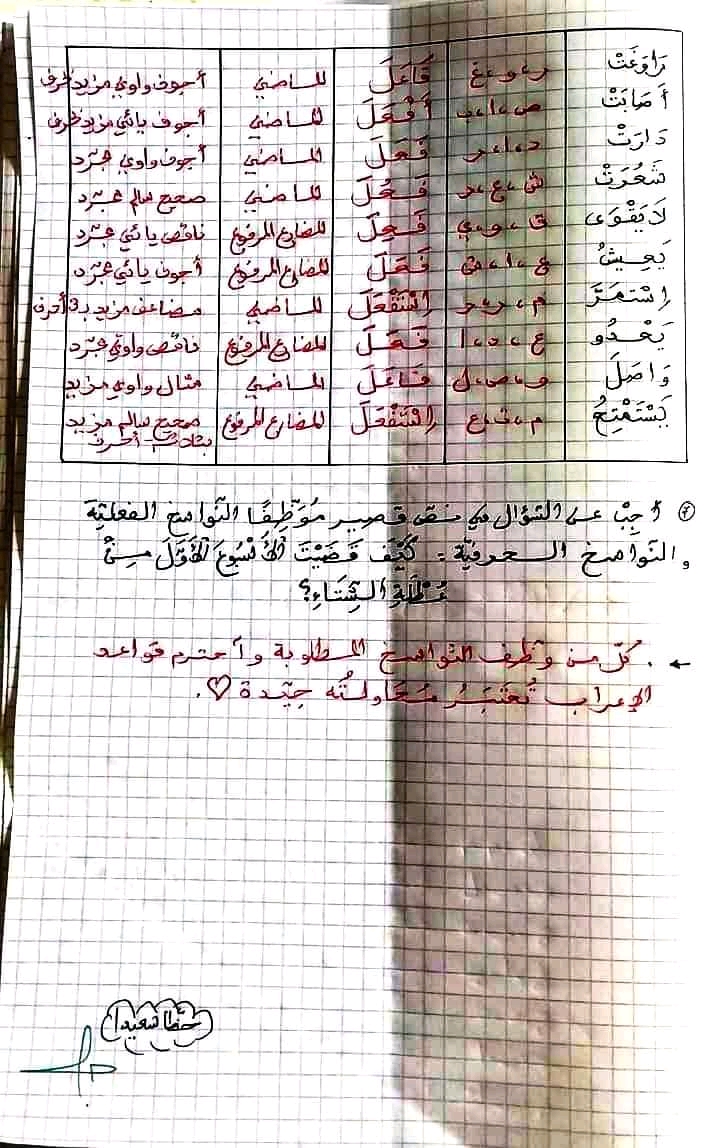 رَاوَغَتْ ر، و، غ فَاعَلَ الماضي أجوف واوي مزيد بحرف
أَصَابَتْ ص، ا، ب أَفْعَلَ الماضي أجوف يائي مزيد بحرف
دَارَتْ د، ا، ر فَعَلَ الماضي أجوف واوي مجرّد
شَعُرَتْ ش، ع، ر فَعُلَ الماضي صحيح سالم مجرّد
لَا يَقْوَى ق، و، ي فَعِلَ المضارع المرفوع ناقص يائي مجرّد
يَعِيشُ ع، ا، ش فَعَلَ المضارع المرفوع أجوف يائي مجرّد
اِسْتَمَرَّ م، ر، ر اِسْتَفْعَلَ الماضي مضاعف مزيد بـ3 أحرف
يَعْدُو ع، د، ا فَعَلَ المضارع المرفوع ناقص واوي مجرّد
وَاصَلَ و، ص، ل فَاعَلَ الماضي مثال واوي مزيد
يَسْتَمْتِعُ م، ت، ع اِسْتَفْعَلَ المضارع المرفوع صحيح سالم مزيد
بثلاث أحرف
أَجِبْ عن السّؤال في نصّ قصير مُوَظِّفًا النّواسخ الفعليّة
والنّواسخ الحرفيّة: كَيْفَ قَضَيْتَ الأُسْبُوعَ الأَوَّلَ مِنْ
عُطْلَةِ الشِّتَاءِ؟
← . كلّ من وظّف النّواسخ المطلوبة وٱحترم قواعد
الإعراب تُعْتَبَرُ مُحَاوَلَتُه جيّدة ♡.
حظّا سعيدا